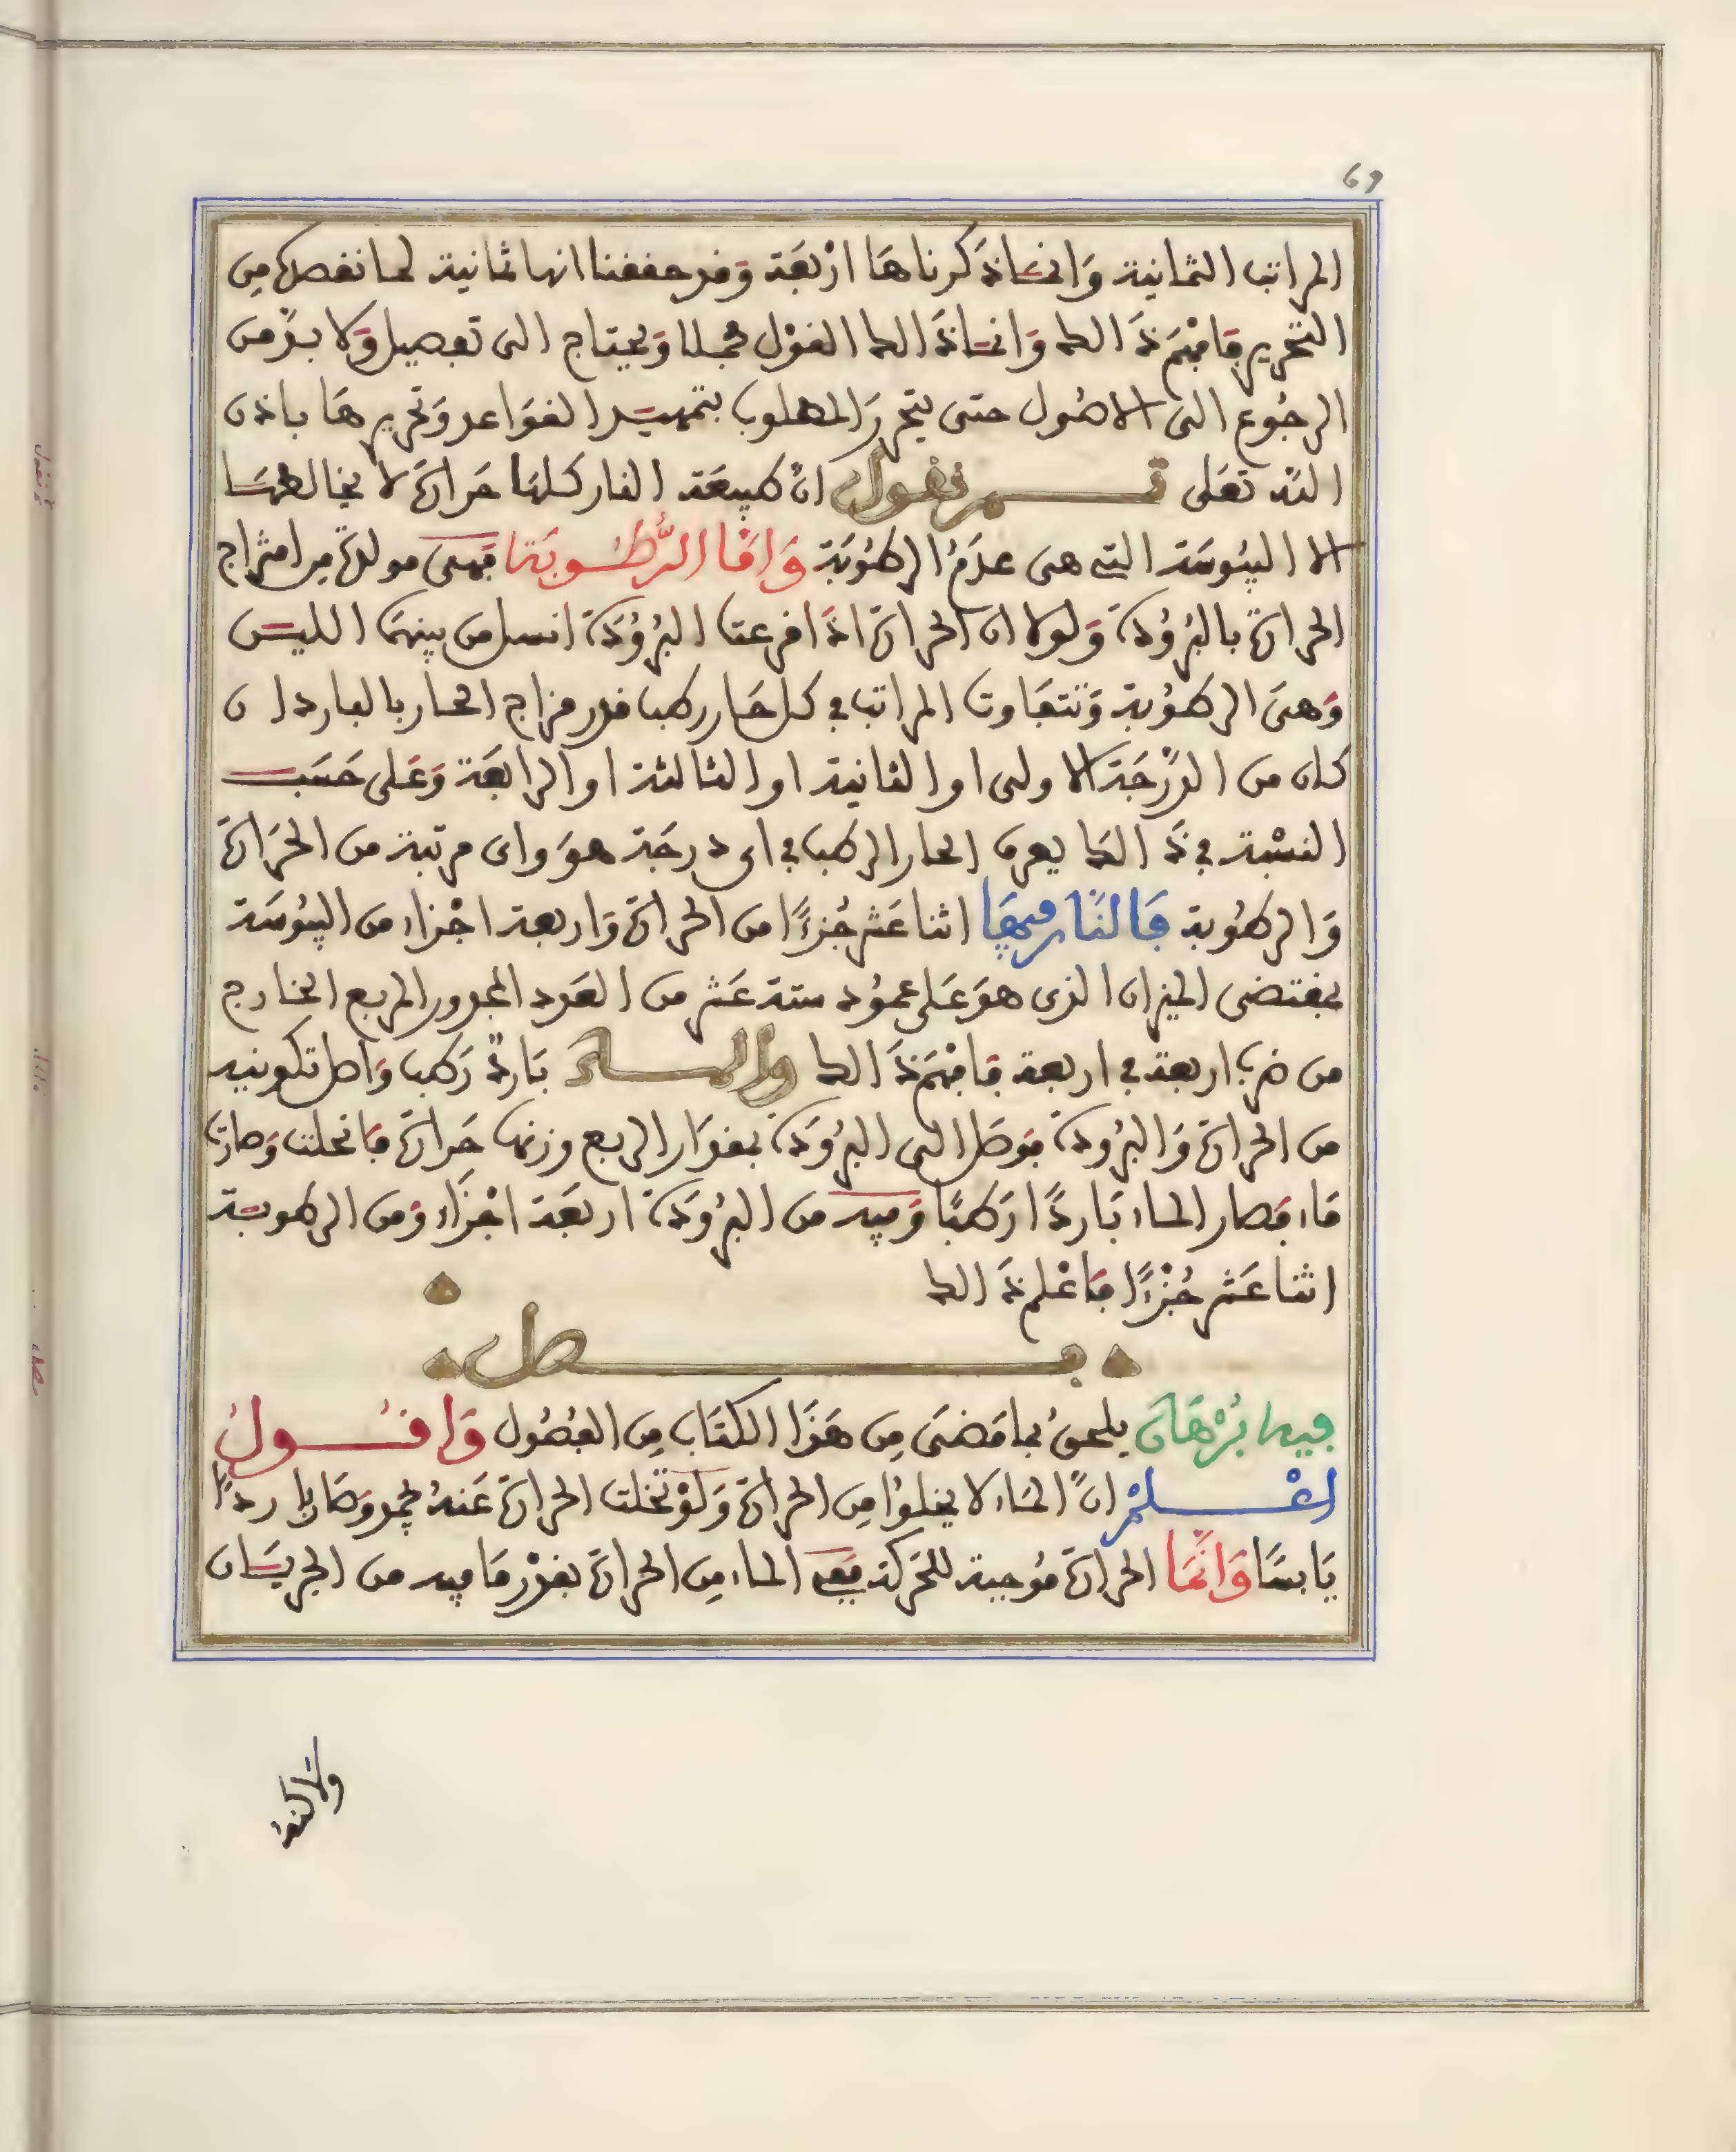 69
المراتب الثمانية وَانما ذكرناهَا ارْبَعَة وَقد حققنا انها ثمانية لما نقصده مِن
التحرير فَافهَم ذَالك وَانما ذَالك القوْل مجملا وَيحتاج الى تفصيل وَلا بدّ من
الرجُوع الى الاصُول حتى يتحرر المطلوب بتمهيد القوَاعد وَتحريرهَا باذن
اللّه تعَلى ثم نقول انّ طبيعَة النار كلهَا حَرارَة لا يخالطهَا
الا اليبُوسَة التي هى عدَمُ الرطُوبَة وَامَّا الرُّطُوبَة فهى مولدة مِن امتزاج
الحرارة بالبُرُودَة وَلولا ان الحرارَة اذَا افرعت البُرُودَة انسل من بينهمَا اللين
وَهىَ الرطوُبة وَتتفَاوت المراتب في كل حَار رطب قدر مزاج الحار بالبارد ان
كان من الدّرَجَة الاولى او الثانية او الثالثة او الرابعَة وَعَلى حَسَب
النسْبة في ذَالك يعرف الحار الرطب في اى درجَة هوَ واى مرتبة من الحَرَارَة
وَالرطوُبة فَالنَّار فيهَا اثنا عَشر جُزءًا من الحرارة وَاربعة اجْزاء من اليبُوسَة
بمقتضى الميزان الذى هوَ عَلى عمُود ستة عَشر من العَدد المجدور المربع الخارج
من ضرب اربعة في اربعة فَافهَم ذَالك والماء بَاردٌ رَطب وَاصل تكوينه
من الحرارَة وَالبرُودَة فوَصَل الى البرُودَة بمقدَار الربع وزنهَا حَرارَة فَانحلت وَصَارت
مَاء فصَار الماء بَاردًا رَطبًا وَفيه من البرُودَة اربَعَة اجْزَاء وَمن الرطوبة
اثنا عَشر جُزْءًا فَاعْلم ذَالك
فصل
فيه بُرْهَان يلحقُ بما مَضىَ مِن هَذَا الكتَاب مِن الفصُول وَاقُول
اعْلمْ انّ المَاء لا يخلوُا مِن الحرارَة وَلوْ تخلت الحرارَة عَنهُ لجمد وَصَار باردًا
يَابسًا وَانّمَا الحرارَة مُوجبة للحَركة فَفى الماء مِن الحرارَة بقدْر مَا فيه من الجريَان
ولاكنهُ